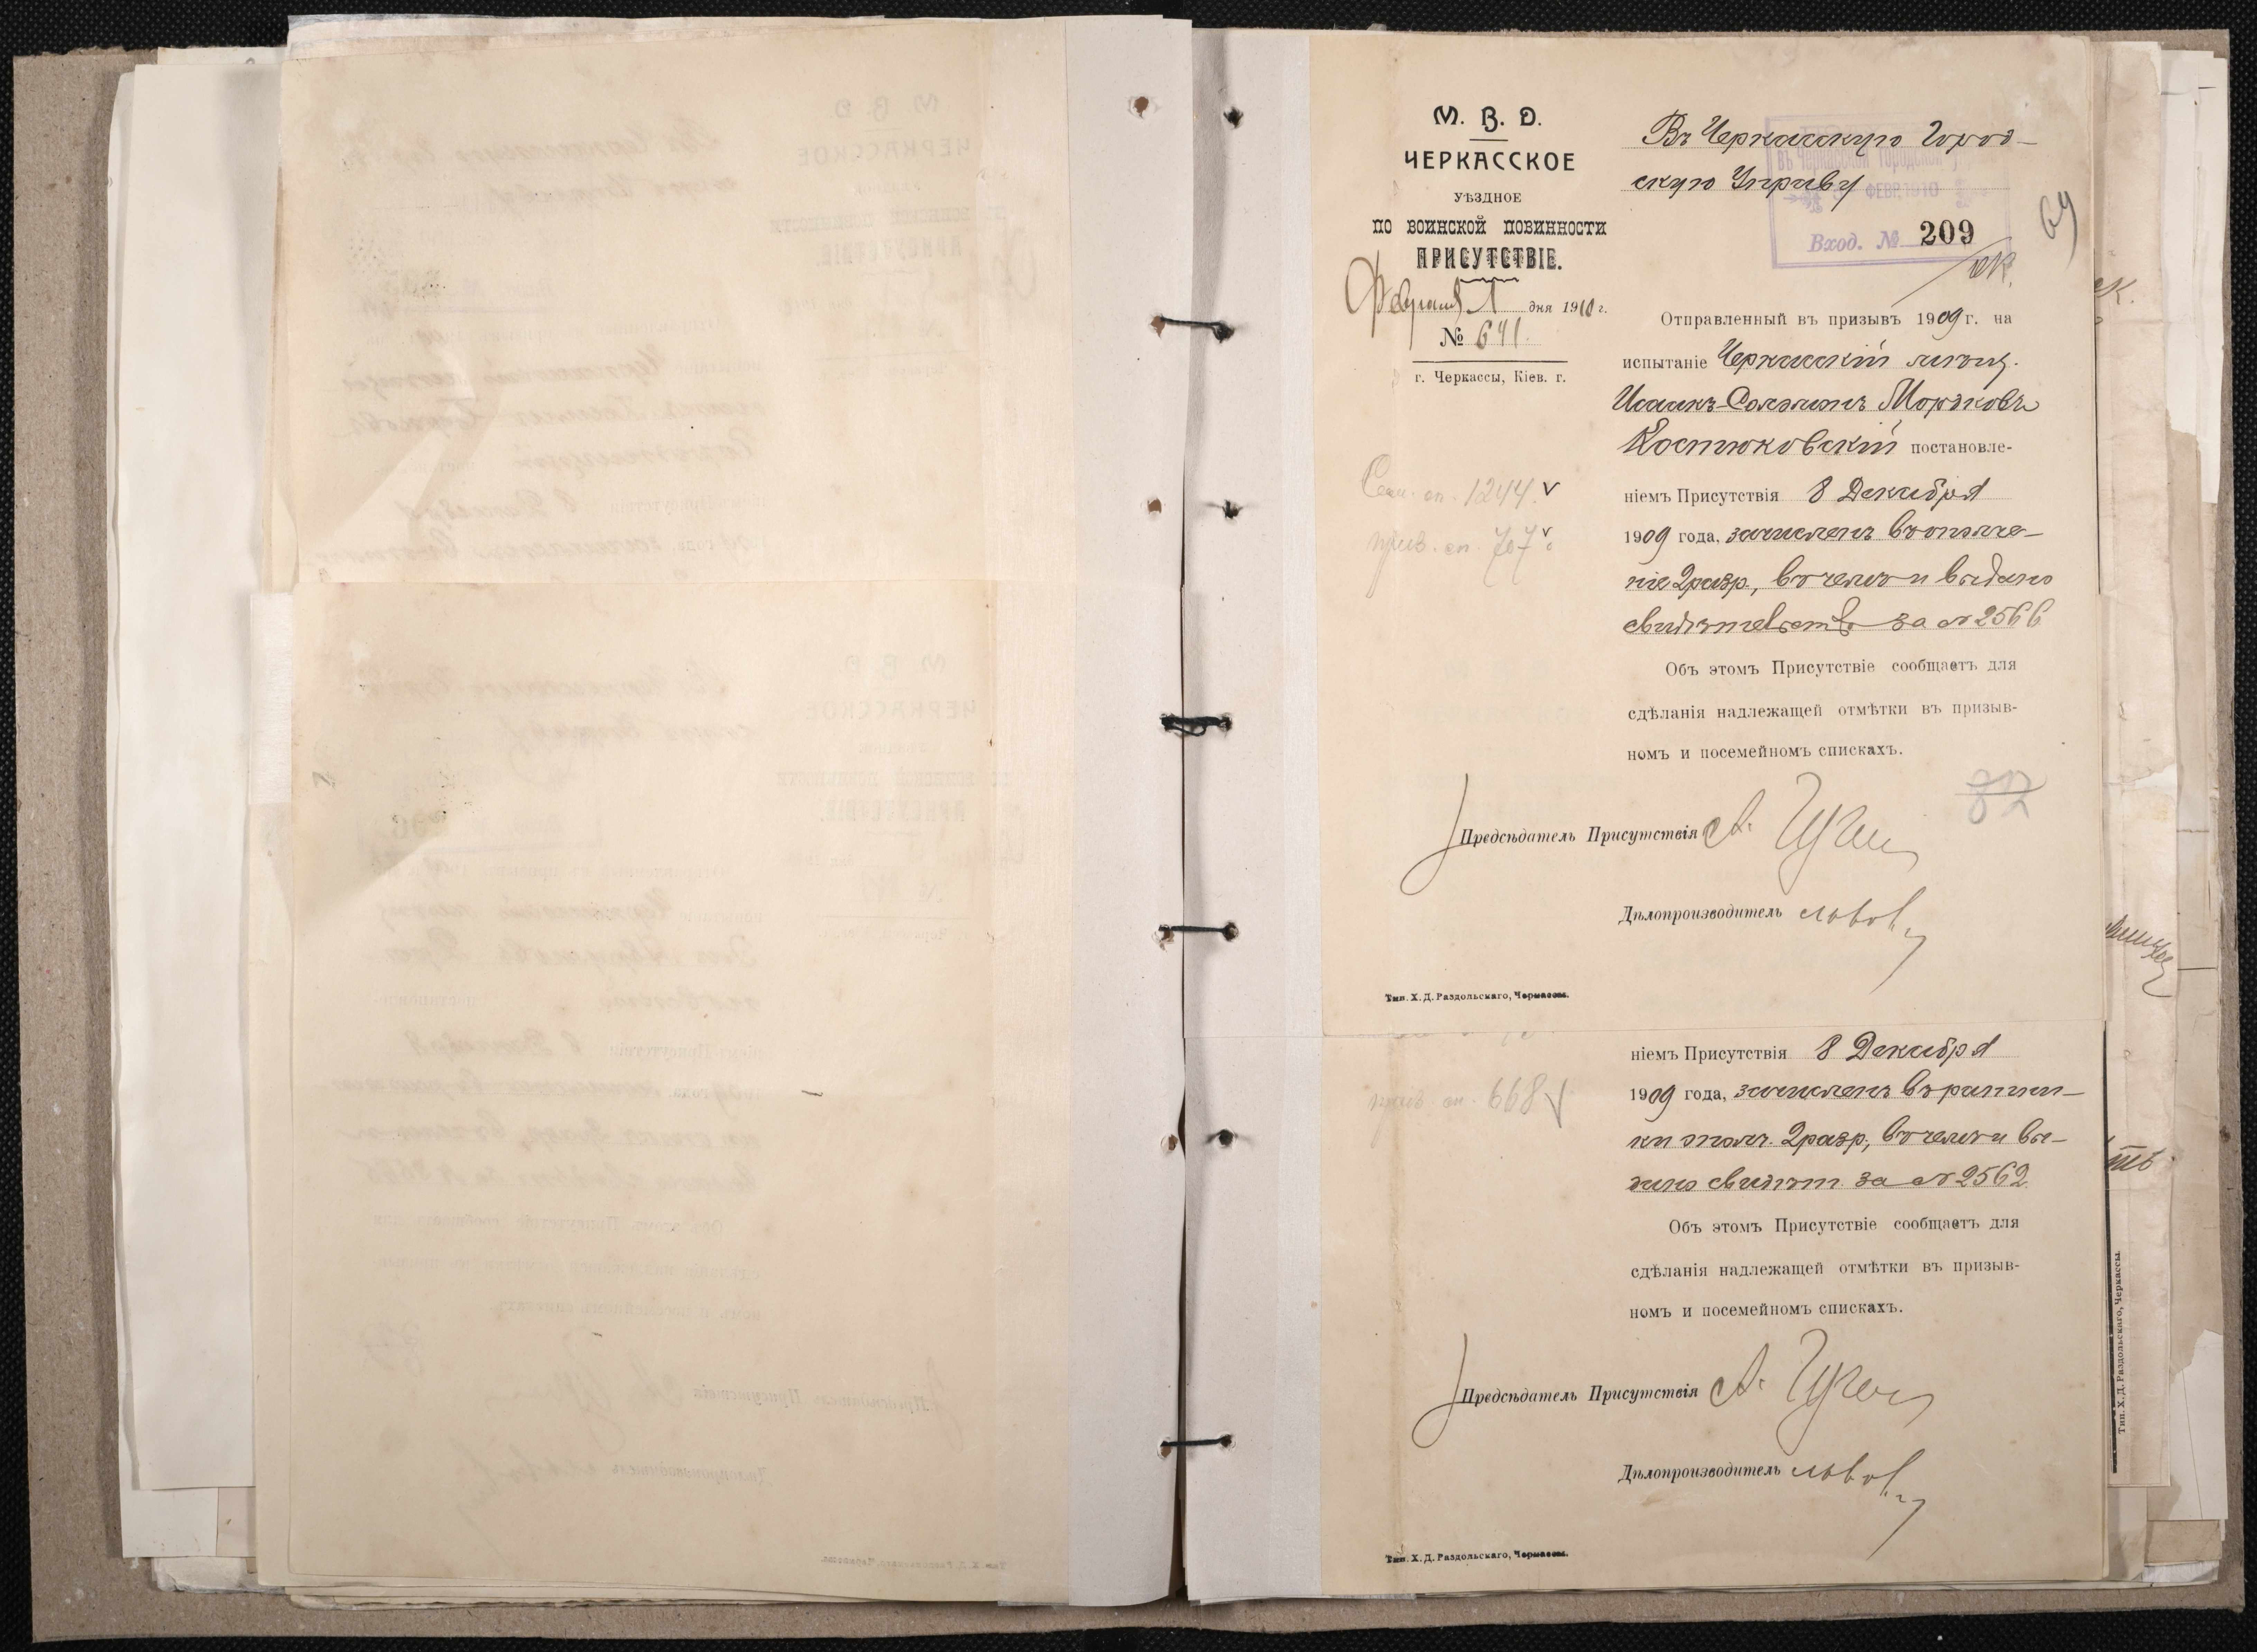 М. В. Д.
ЧЕРКАССКОЕ
УѢЗДНОЕ
ПО ВОИНСКОЙ ПОВИННОСТИ
ПРИСУТСТВІЕ.
Февраля 1 дня 1910 г.
№ 641.
г. Черкассы, Кіев. г.
Въ Черкасскую Город-
скую Управу
ФЕВР. 1910
Вход. № 209
69
Отправленный въ призывъ 1909 г. на
испытаніе Черкасскій мѣщ.
Исаакъ-Соломонъ Морзковъ
Костюковскій постановле-
ніемъ Присутствія 8 Декабря
1909 года, зачисленъ въ ополче-
ніе 2 разр., въ чемъ и выдано
свидѣтельство за № 2566
Сем. сп. 1244. v
приз. сп. 707 v
Объ этомъ Присутствіе сообщаетъ для
сдѣланія надлежащей отмѣтки въ призыв-
номъ и посемейномъ спискахъ.
Предсѣдатель Присутствія
Дѣлопроизводитель
Тип. Х. Д. Раздольскаго, Черкассы.
ніемъ Присутствія 8 Декабря
1909 года, зачисленъ въ ратни-
ки ополч. 2 разр., въ чемъ и вы-
дано свидѣт. за № 2562
приз. сп. 668 v
Объ этомъ Присутствіе сообщаетъ для
сдѣланія надлежащей отмѣтки въ призыв-
номъ и посемейномъ спискахъ.
Предсѣдатель Присутствія
Дѣлопроизводитель
Тип. Х. Д. Раздольскаго, Черкассы.
Тип. Х. Д. Раздольскаго, Черкассы